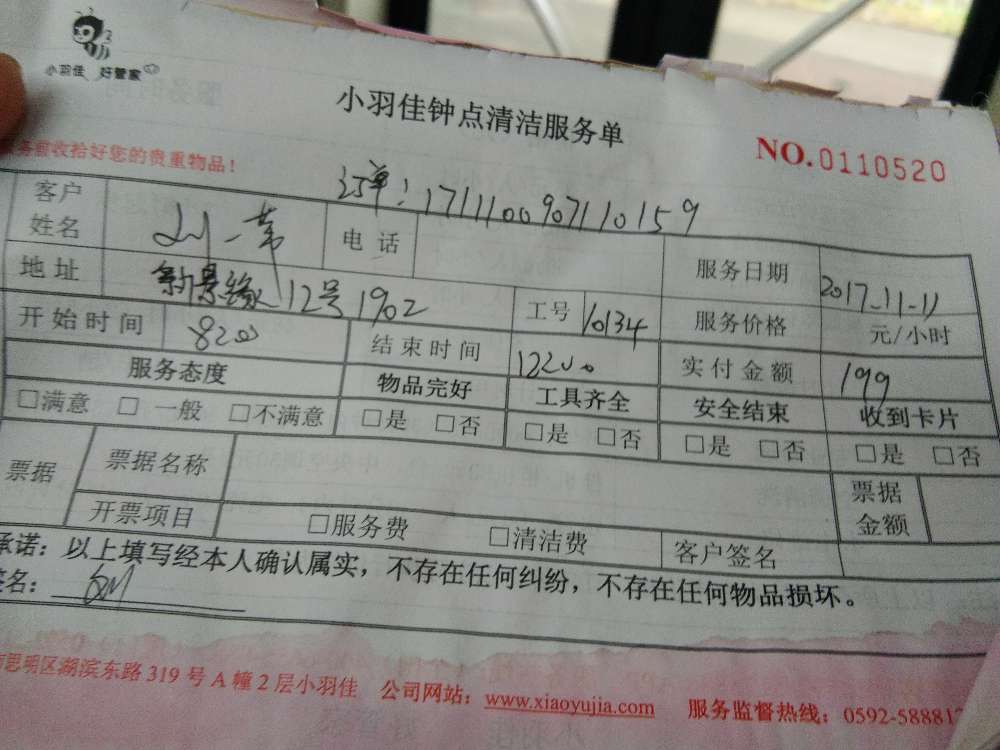 小羽佳 好管家
小羽佳钟点清洁服务单
NO.0110520
收拾好您的贵重物品!
订单:17111009071 10159
客户姓名 电话 服务日期 2017-11-11
地址 新景缘12号1902 工号 10134 服务价格 元/小时
开始时间 8200 结束时间 12200 实付金额 199
服务态度 物品完好 工具齐全 安全结束 收到卡片
□满意 □一般 □不满意 □是 □否 □是 □否 □是 □否 □是 □否
票据 票据名称 票据金额
开票项目 □服务费 □清洁费 客户签名
承诺:以上填写经本人确认属实,不存在任何纠纷,不存在任何物品损坏。
签名:
思明区湖滨东路319号A幢2层小羽佳 公司网站:www.xiaoyujia.com 服务监督热线:0592-588812